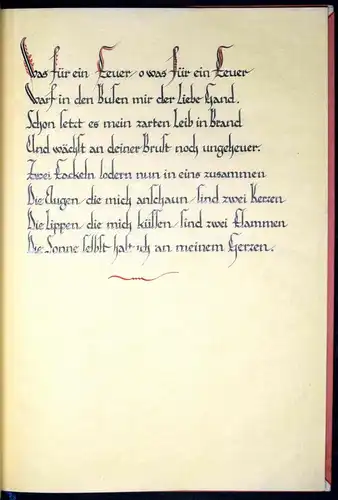 Was für ein Feuer / o was für ein Feuer
Warf in den Busen mir der Liebe Hand.
Schon setzt es mein zarten Leib in Brand
Und wächst an deiner Brust noch ungeheuer.
Zwei Fackeln lodern nun in eins zusammen
Die Augen / die mich anschaun / sind zwei Kerzen
Die Lippen / die mich küssen / sind zwei Flammen
Die Sonne selbst halt ich an meinem Herzen.